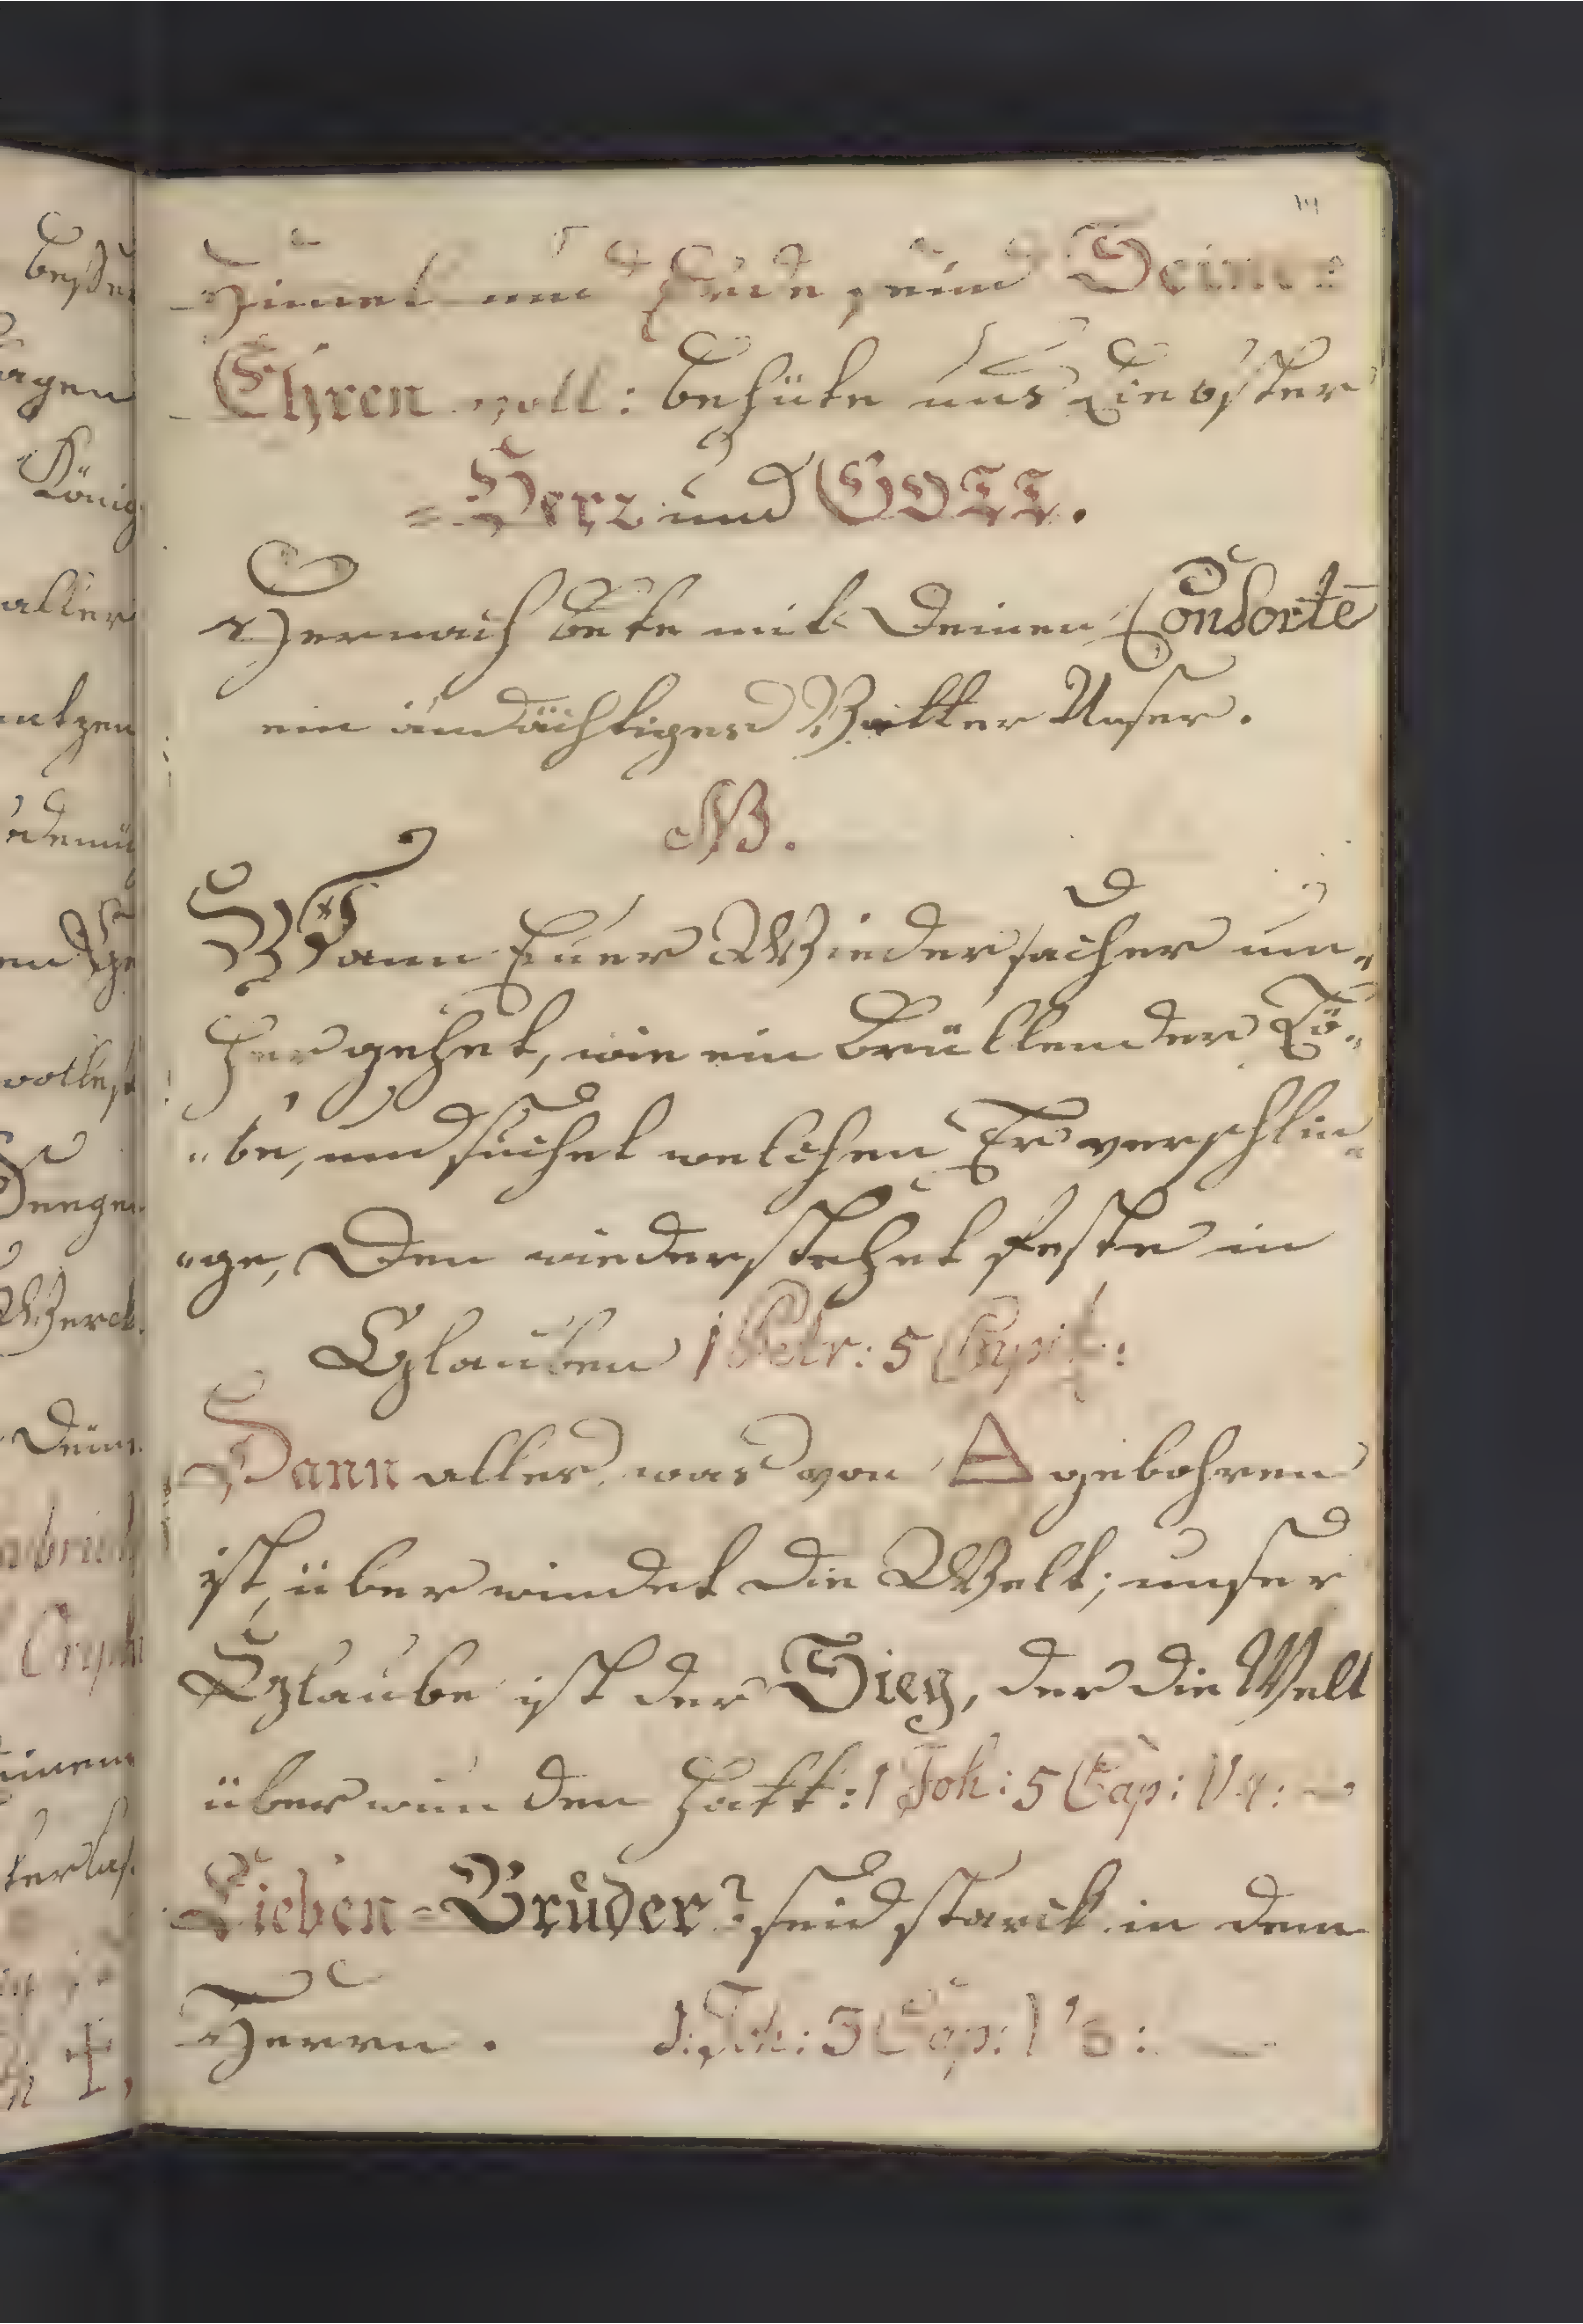 Himel und Erde, sind Deiner
Ehren voll: behüte uns Liebster
Herr und GOTT.
Hernach bete mit Deinen Consortē
ein andächtiges Vatter Unser.
NB.
Wann Euer Wiedersacher um„
her gehet, wie ein brüllender Lö„
„be, und suchet welchen Er verschlin„
„ge, Den wiederstehet feste in
Glauben 1 Petr: 5 Capit:
Dann alles was von △ gebohren
ist, überwindet die Welt; unser
Glaube ist der Sieg, der die Welt
überwunden hatt: 1 Joh: 5 Cap:
Lieben=Brüder? seid starck in dem
Herren. 1. Joh: 5 Cap: